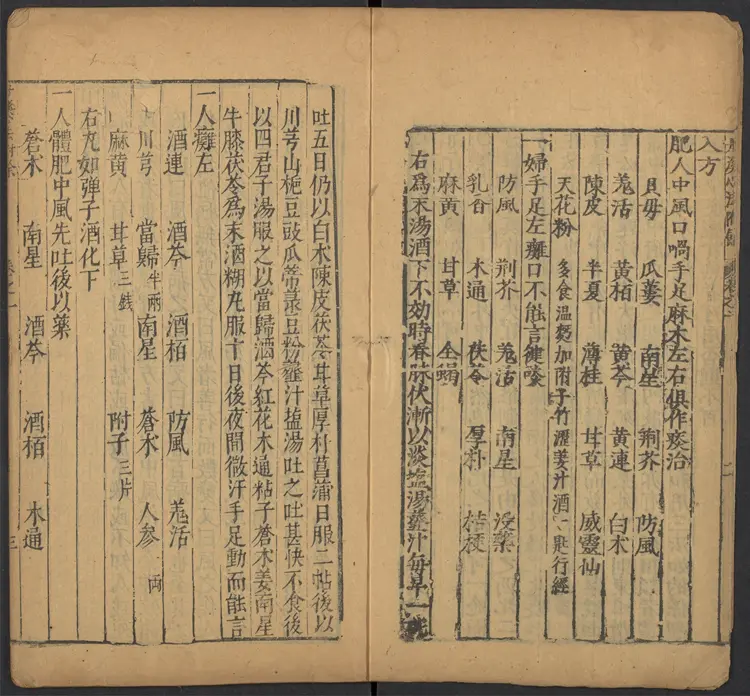 入方
肥人中風口喎手足麻木左右俱作痰治
貝母 瓜蔞 南星 荆芥 防風
羗活 黄栢 黄芩 黄連 白术
陳皮 半夏 薄桂 甘草 威靈仙
天花粉 多食温麪加附子竹瀝姜汁酒一匙行經
一婦手足左癱口不能言健啖
防風 荆芥 羗活 南星 没藥
乳香 木通 茯苓 厚朴 桔梗
麻黄 甘草 全蝎
右爲末湯酒下不効時春脉伏漸以淡塩湯虀汁每早一
吐五日仍以白术陳皮茯苓甘草厚朴菖蒲日服二帖後以
川芎山梔豆豉瓜蒂菉豆粉虀汁塩湯吐之吐甚快不食後
以四君子湯服之以當歸酒芩紅花木通粘子蒼术姜南星
牛膝茯苓爲末酒糊丸服十日後夜間微汗手足動而能言
一人癱左
酒連 酒芩 酒栢 防風 羗活
川芎 當歸半兩 南星 蒼术 人参 兩
麻黄 甘草三錢 附子三片
右丸如弹子酒化下
一人體肥中風先吐後以藥
蒼木 南星 酒芩 酒栢 木通
三